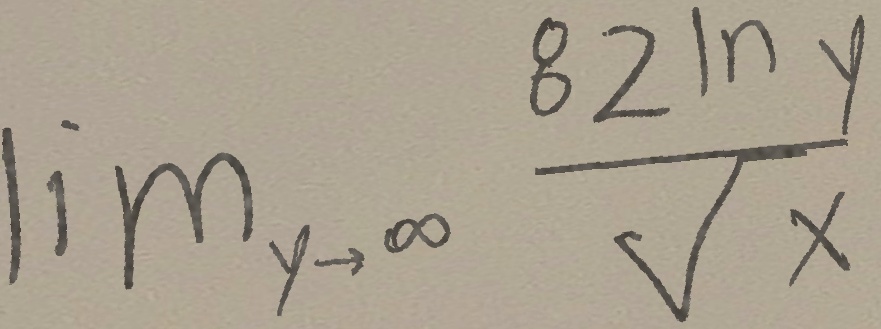 lim_{y→∞} \frac{82 ln y}{\sqrt{x}}